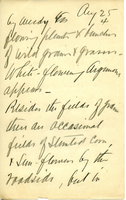 by Aug 25
flowering plants & bunches
of wild grams & grasses.
White-flowering Argemone
appears –
Besides the fields of grain
there are occasional
fields of
& Sun-flowers by the
roadside, but in